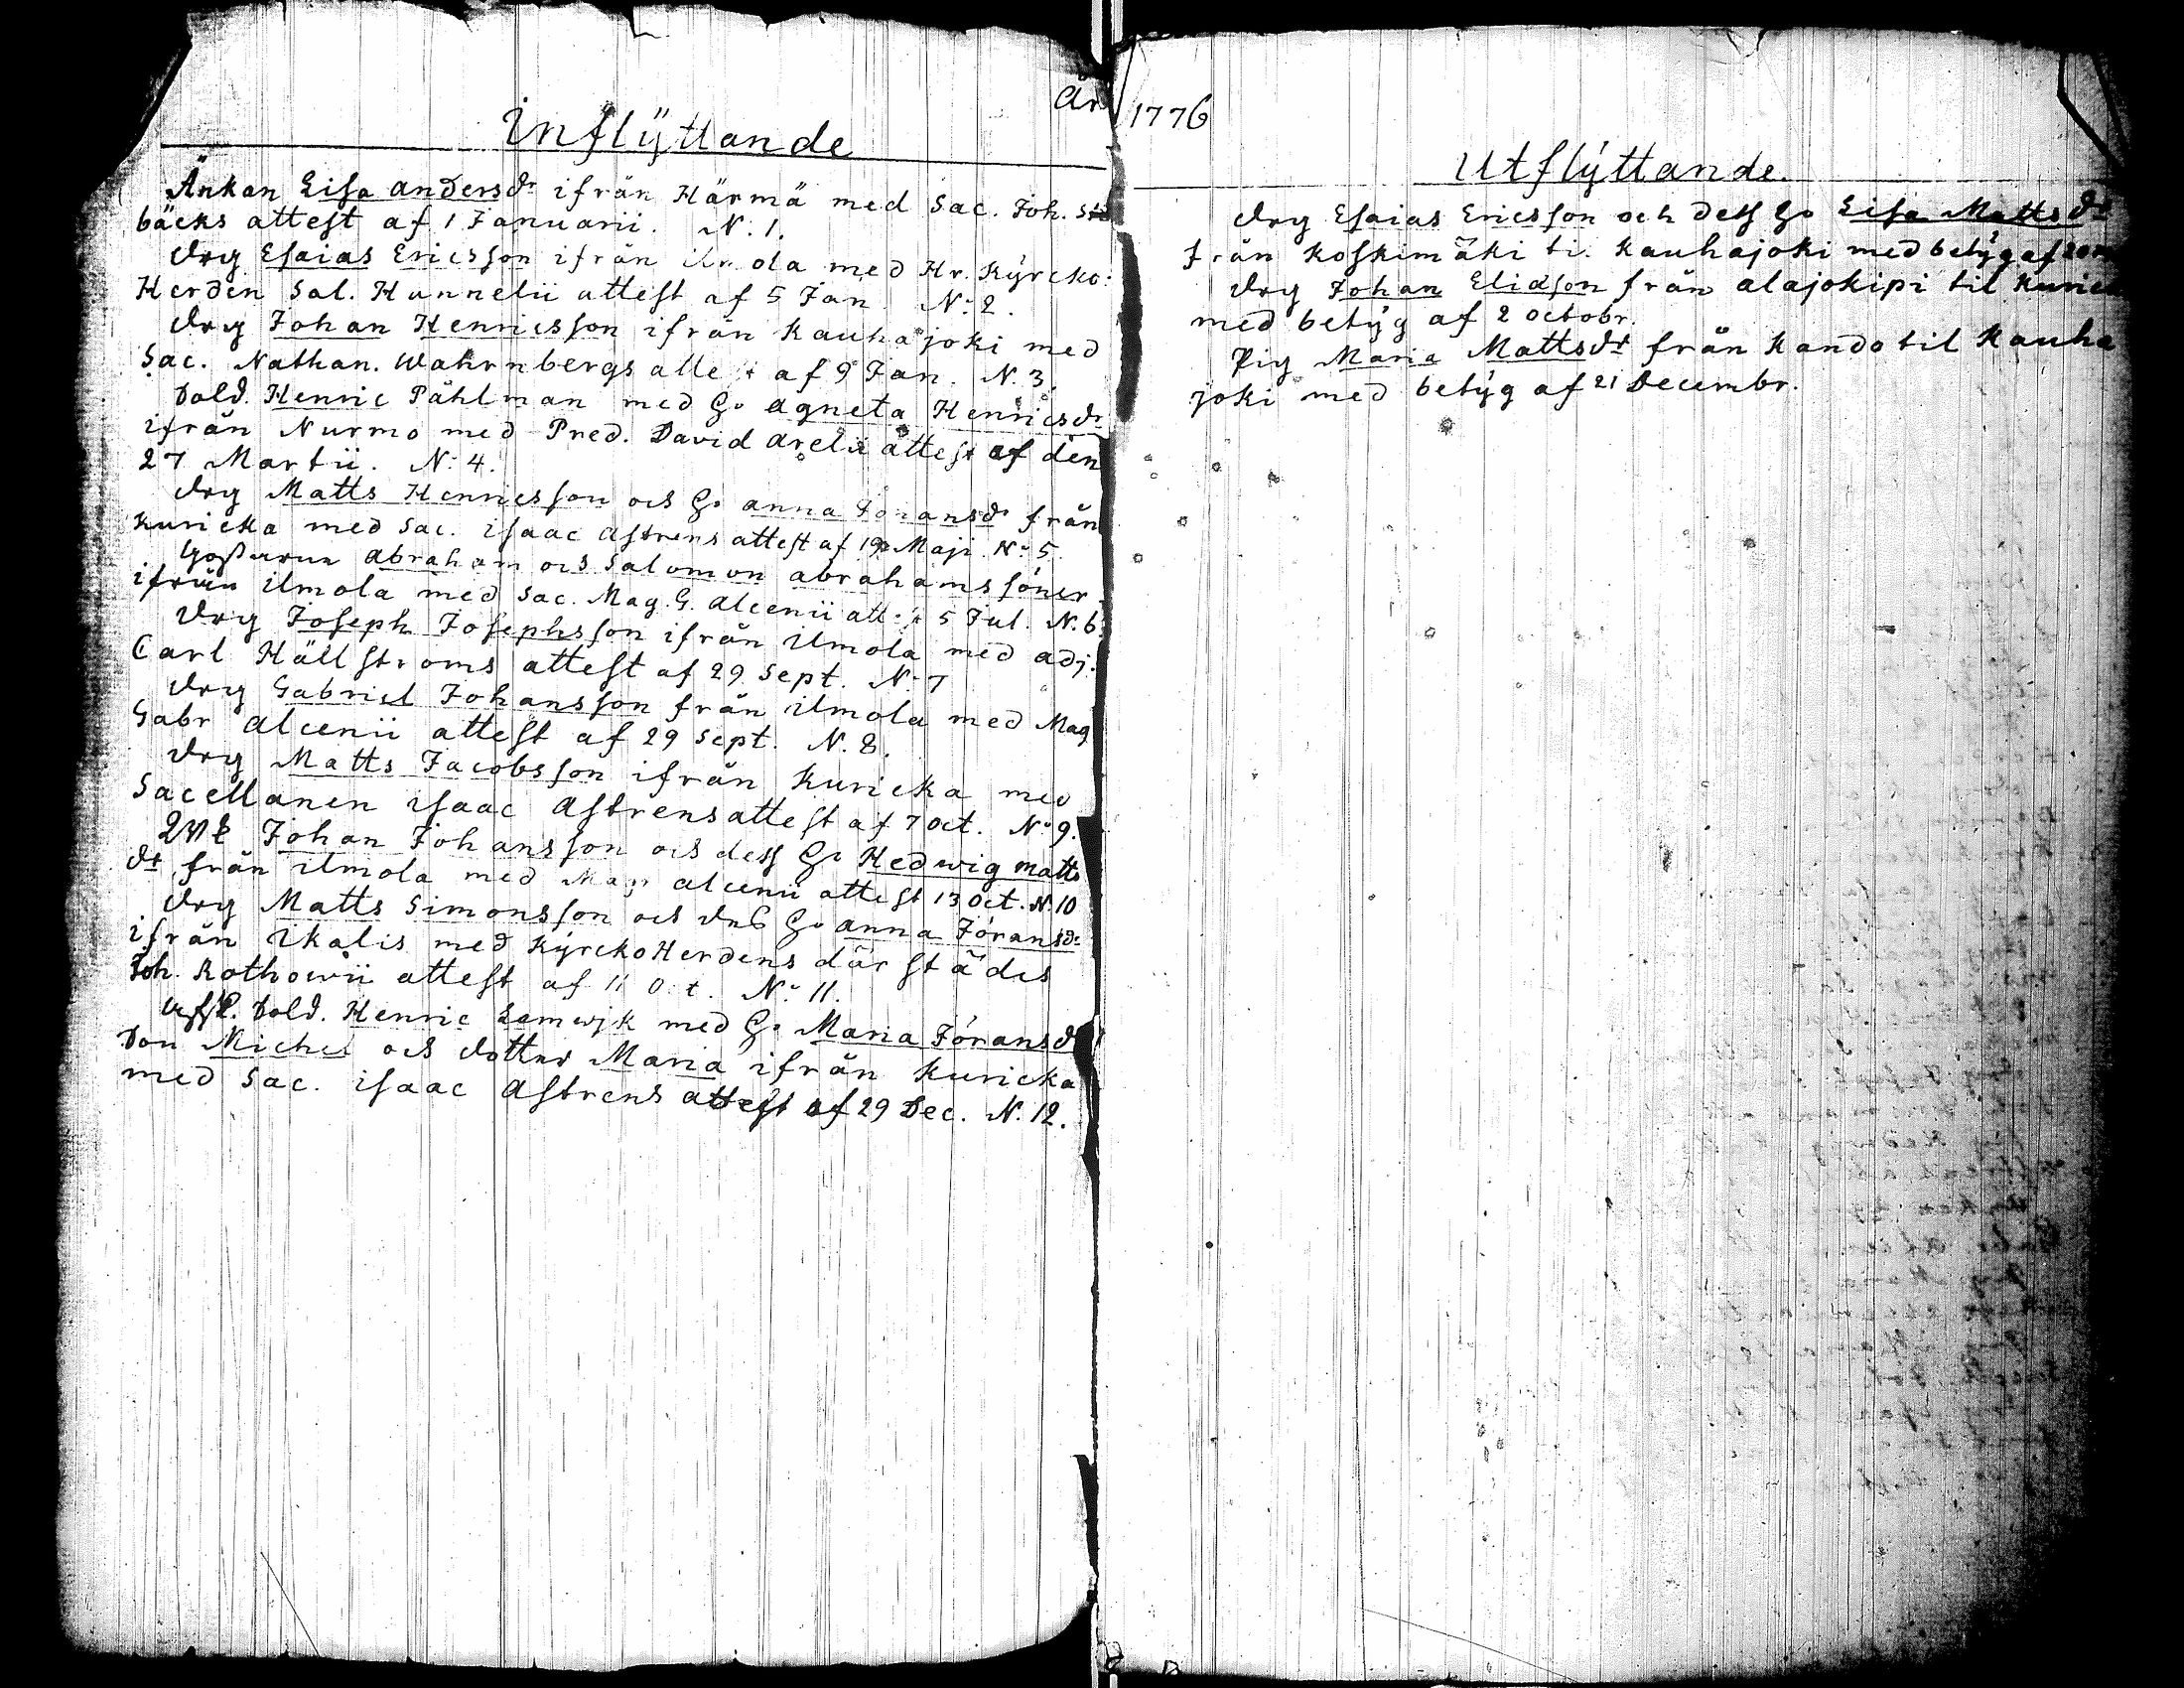 År 1776
Inflÿttande
Änkan Lisa Andersdr ifrån Härmä med Sac. Joh.
bäcks attest af 1 Januarii. N:1.
Drg Esaias Ericsson ifrån Ilmola med Hr. Kÿrcko:
Herden Sal. Hannelii attest af 5 Jan N:2.
Drg Johan Henricsson ifrån Kauhajoki med
Sac. Nathan. Wahrnbergs attest af 9 Jan. N.3.
Sold. Henric Påhlman med H. Agneta Henricsdr
ifrån Nurmo med Pred. David Arelii attest af den
27 Martii. N:4.
Drg Matts Henricsson och H. Anna Johansdr från
Kuricka med Sac. Isaac Astrens attest af 19 Maji. N:5.
Gossarne Abraham och Salomon Abrahams söner
ifrån Ilmola med Sac. Mag. G. Alcenii att: 5 Jul. N.6.
Drg Joseph Josephsson ifrån Ilmola med Adj.
Carl Hällstroms attest af 29 Sept. N:7
Drg Gabriel Johansson från Ilmola med Mag
Gabr Alcenii attest af 29 Sept. N.8.
Drg Matts Jacobsson ifrån Kuricka med
Sacellanen Isaac Astrens attest af 7 Oct. N:9.
Johan Johansson och dess H. Hedwig Matts
dr från Ilmola med Mag Alcenii attest 13 Oct. N.10
Drg Matts Simonsson och dess H. Anna Jöransdr
ifrån Ikalis med KÿrckoHerdens där städes
Joh. Rothowii attest af 11 Oct. N:11.
Afsk. Sold. Henric Lemwjk med H. Maria Jöransdr
Son Michel och dotter Maria ifrån Kuricka
med Sac. Isaac Astrens attest af 29 Dec. N.12.
Utflÿttande.
Drg Esaias Ericsson och dess H. Lisa Mattsdr
från Koskimäki til Kauhajoki med betÿg af 20
Drg Johan Eliasson från Alajokipi til Kuricka
med betÿg af 2 Octobr.
Pig Maria Mattsdr från Kando til Kauha
joki med betÿg af 21 Decembr.